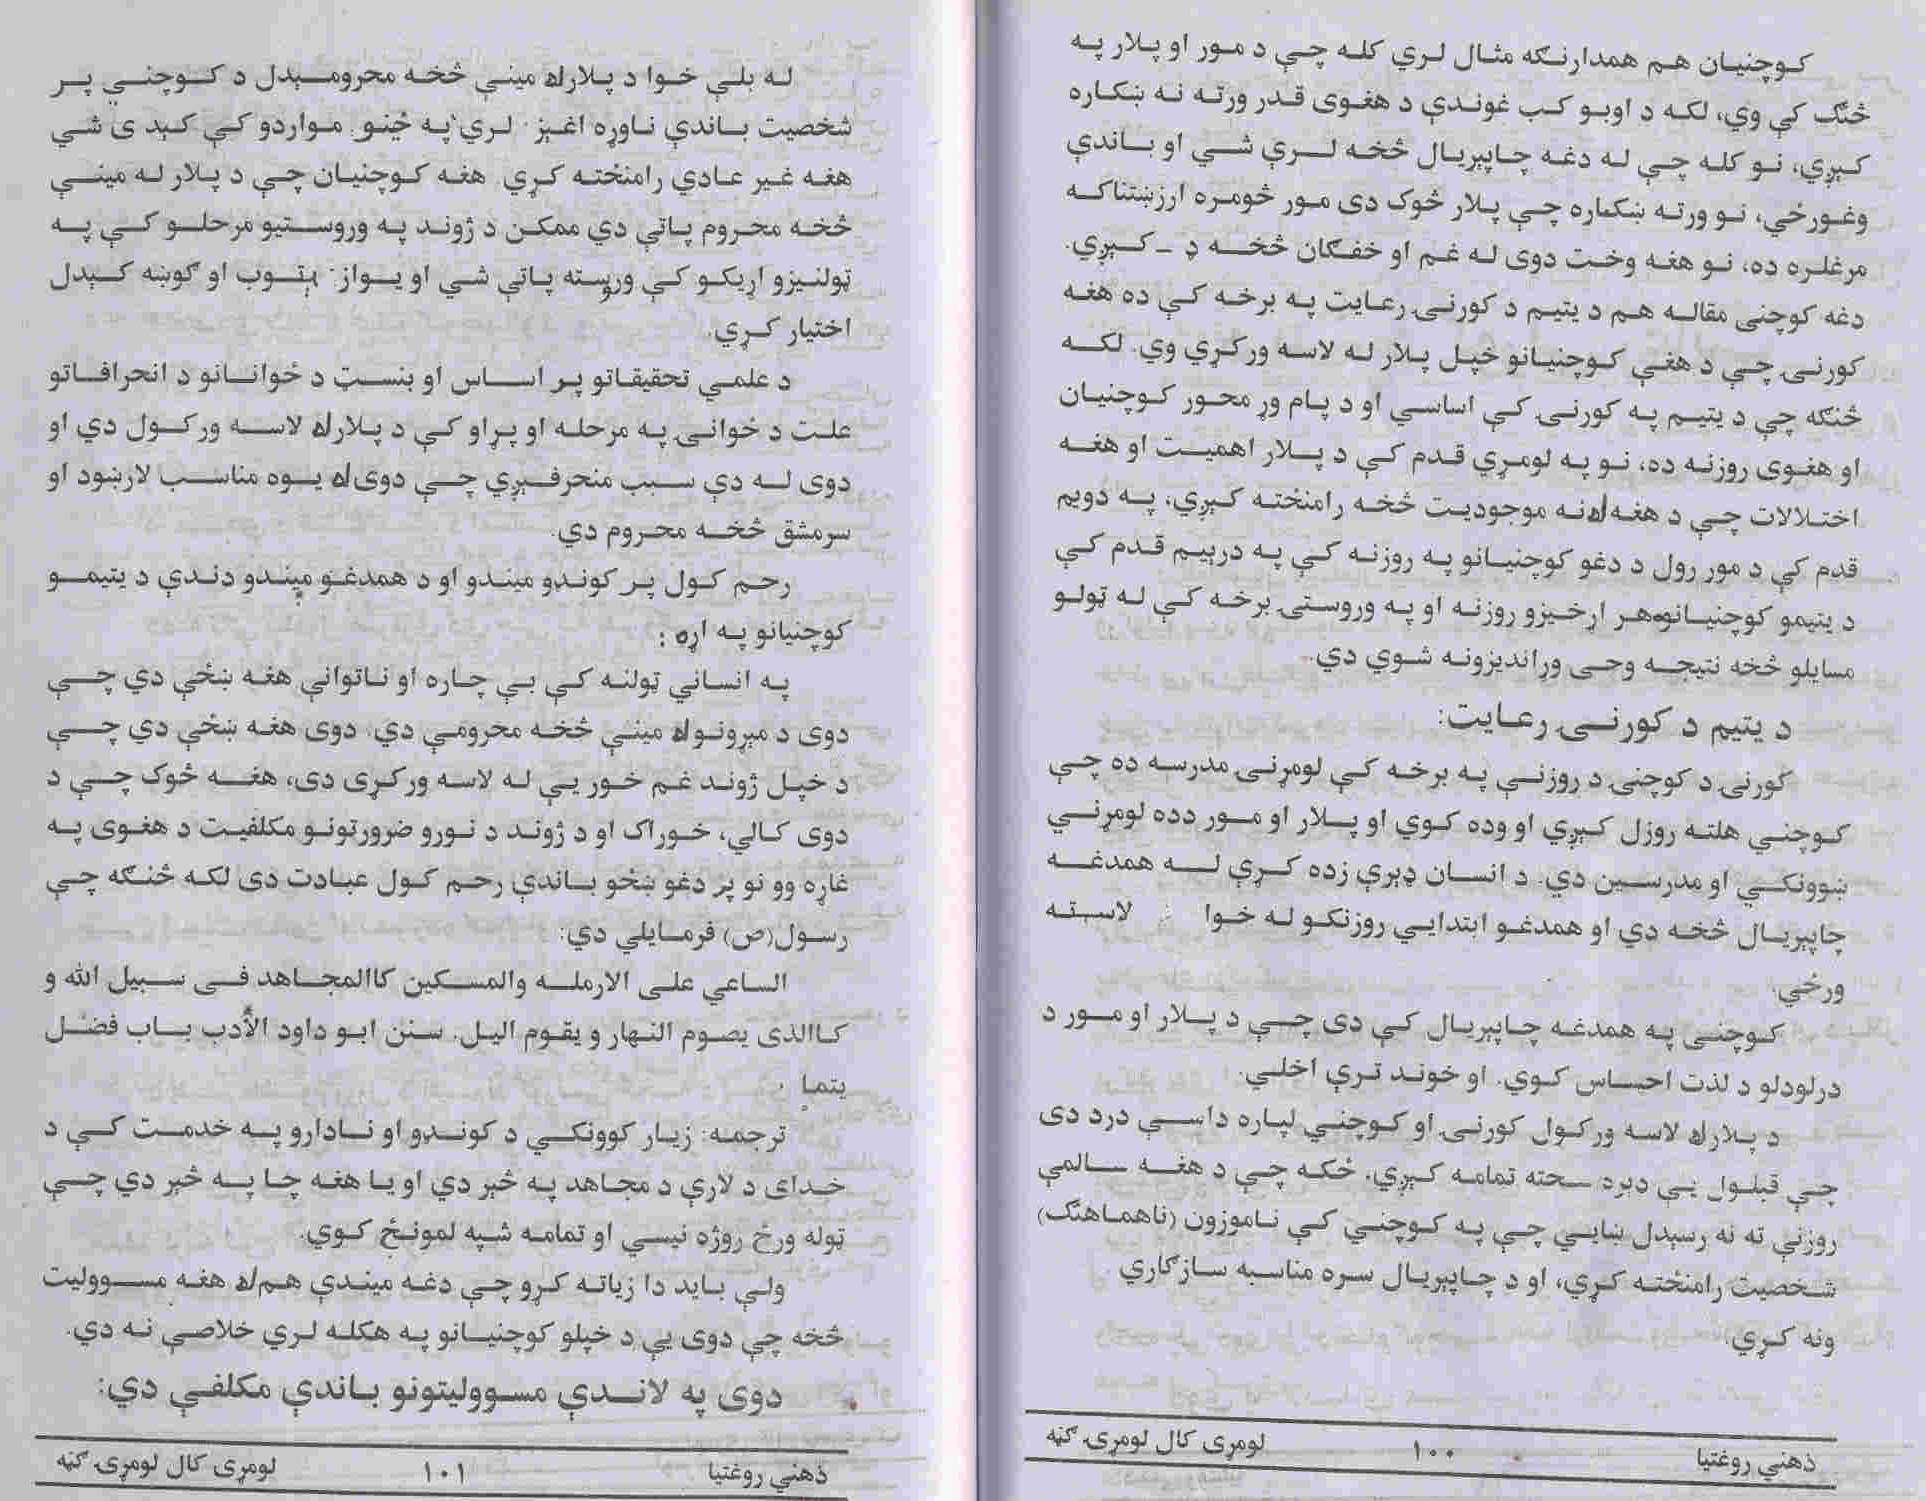 کوچنيان هم همدارنګه مثال لري کله چې د مور او پلار په
څنګ کې وي، لکه د اوبو کب غوندې د هغوی قدر ورته نه ښکاره
کېږي، نو کله چې له دغه چاپېريال څخه لرې شي او باندې
وغورځي، نو ورته ښکاره چې پلار څوک دی مور څومره ارزښتناکه
مرغلره ده، نو هغه وخت دوی له غم او خفګان څخه ډ ـ کېږي.
دغه کوچنی مقاله هم د يتيم د کورنۍ رعايت په برخه کې ده هغه
کورنۍ چې د هغې کوچنيانو خپل پلار له لاسه ورکړي وي. لکه
څنګه چې د يتيم په کورنۍ کې اساسي او د پام وړ محور کوچنيان
او هغوی روزنه ده، نو په لومړي قدم کې د پلار اهميت او هغه
اختلالات چې د هغه له نه موجوديت څخه رامنځته کېږي، په دويم
قدم کې د مور رول د دغو کوچنيانو په روزنه کې په درېيم قدم کې
د يتيمو کوچنيانو هر اړخيزو روزنه او په وروستۍ برخه کې له ټولو
مسايلو څخه نتيجه وحی وړانديزونه شوي دي.
د يتيم د کورنۍ رعايت:
کورنۍ د کوچنۍ د روزنې په برخه کې لومړنۍ مدرسه ده چې
کوچنی هلته روزل کېږي او وده کوي او پلار او مور دده لومړني
ښوونکي او مدرسين دي. د انسان ډېرې زده کړې له همدغه
چاپېريال څخه دي او همدغو ابتدايي روزنکو له خوا لاسته
ورځي.
کوچنی په همدغه چاپېريال کې دی چې د پلار او مور د
درلودلو د لذت احساس کوي. او خوند ترې اخلي.
د پلار له لاسه ورکول کورنۍ او کوچني لپاره داسې درد دی
چې قبلول يې ډېره سخته تمامه کېږي. ځکه چې د هغه سالمې
روزنې ته نه رسېدل ښايي چې په کوچني کې ناموزون (ناهماهنګ)
شخصيت رامنځته کړي، او د چاپېريال سره مناسبه سازګاري
ونه کړي.
ذهني روغتيا ۱۰۰ لومړی کال لومړۍ ګڼه
له بلې خوا د پلار له مينې څخه محرومېدل د کوچني پر
شخصيت باندې ناوړه اغېز لري په ځنو مواردو کې کېد ی شي
هغه غير عادي رامنځته کړي. هغه کوچنيان چې د پلار له مينې
څخه محروم پاتې دي ممکن د ژوند په وروستيو مرحلو کې په
ټولنيزو اړيکو کې وروسته پاتې شي او يواز ېتوب او ګوښه کېدل
اختيار کړي.
د علمي تحقيقاتو پر اساس او بنسټ د ځوانانو د انحرافاتو
علت د ځوانۍ په مرحله او پړاو کې د پلار له لاسه ورکول دي او
دوی له دې سبب منحرفېږي چې دوی له يوه مناسب لارښود او
سرمشق څخه محروم دي.
رحم کول پر کونډو ميندو او د همدغو ميندو دندې د يتيمو
کوچنيانو په اړه :
په انساني ټولنه کې بې چاره او ناتوانې هغه ښځې دي چې
دوی د مېړونو له مينې څخه محرومې دي. دوی هغه ښځې دي چې
د خپل ژوند غم خور يې له لاسه ورکړی دی، هغه څوک چې د
دوی کالي، خوراک او د ژوند د نورو ضرورتونو مکلفيت د هغوی په
غاړه وو نو پر دغو ښځو باندې رحم کول عبادت دی لکه څنګه چې
رسول(ص) فرمايلي دي:
الساعي علی الارمله والمسکين کاالمجاهد فی سبيل الله و
کاالذی يصوم النهار و يقوم اليل. سنن ابو داود الأدب باب فضل
يتما .
ترجمه: زيار کوونکي د کونډو او نادارو په خدمت کې د
خدای د لارې د مجاهد په څېر دي او يا هغه چا په څېر دي چې
ټوله ورځ روژه نيسي او تمامه شپه لمونځ کوي.
ولې بايد دا زياته کړو چې دغه ميندې هم له هغه مسووليت
څخه چې دوی يې د خپلو کوچنيانو په هکله لري خلاصې نه دي.
دوی په لاندې مسووليتونو باندې مکلفې دي:
ذهني روغتيا ۱۰۱ لومړی کال لومړۍ ګڼه